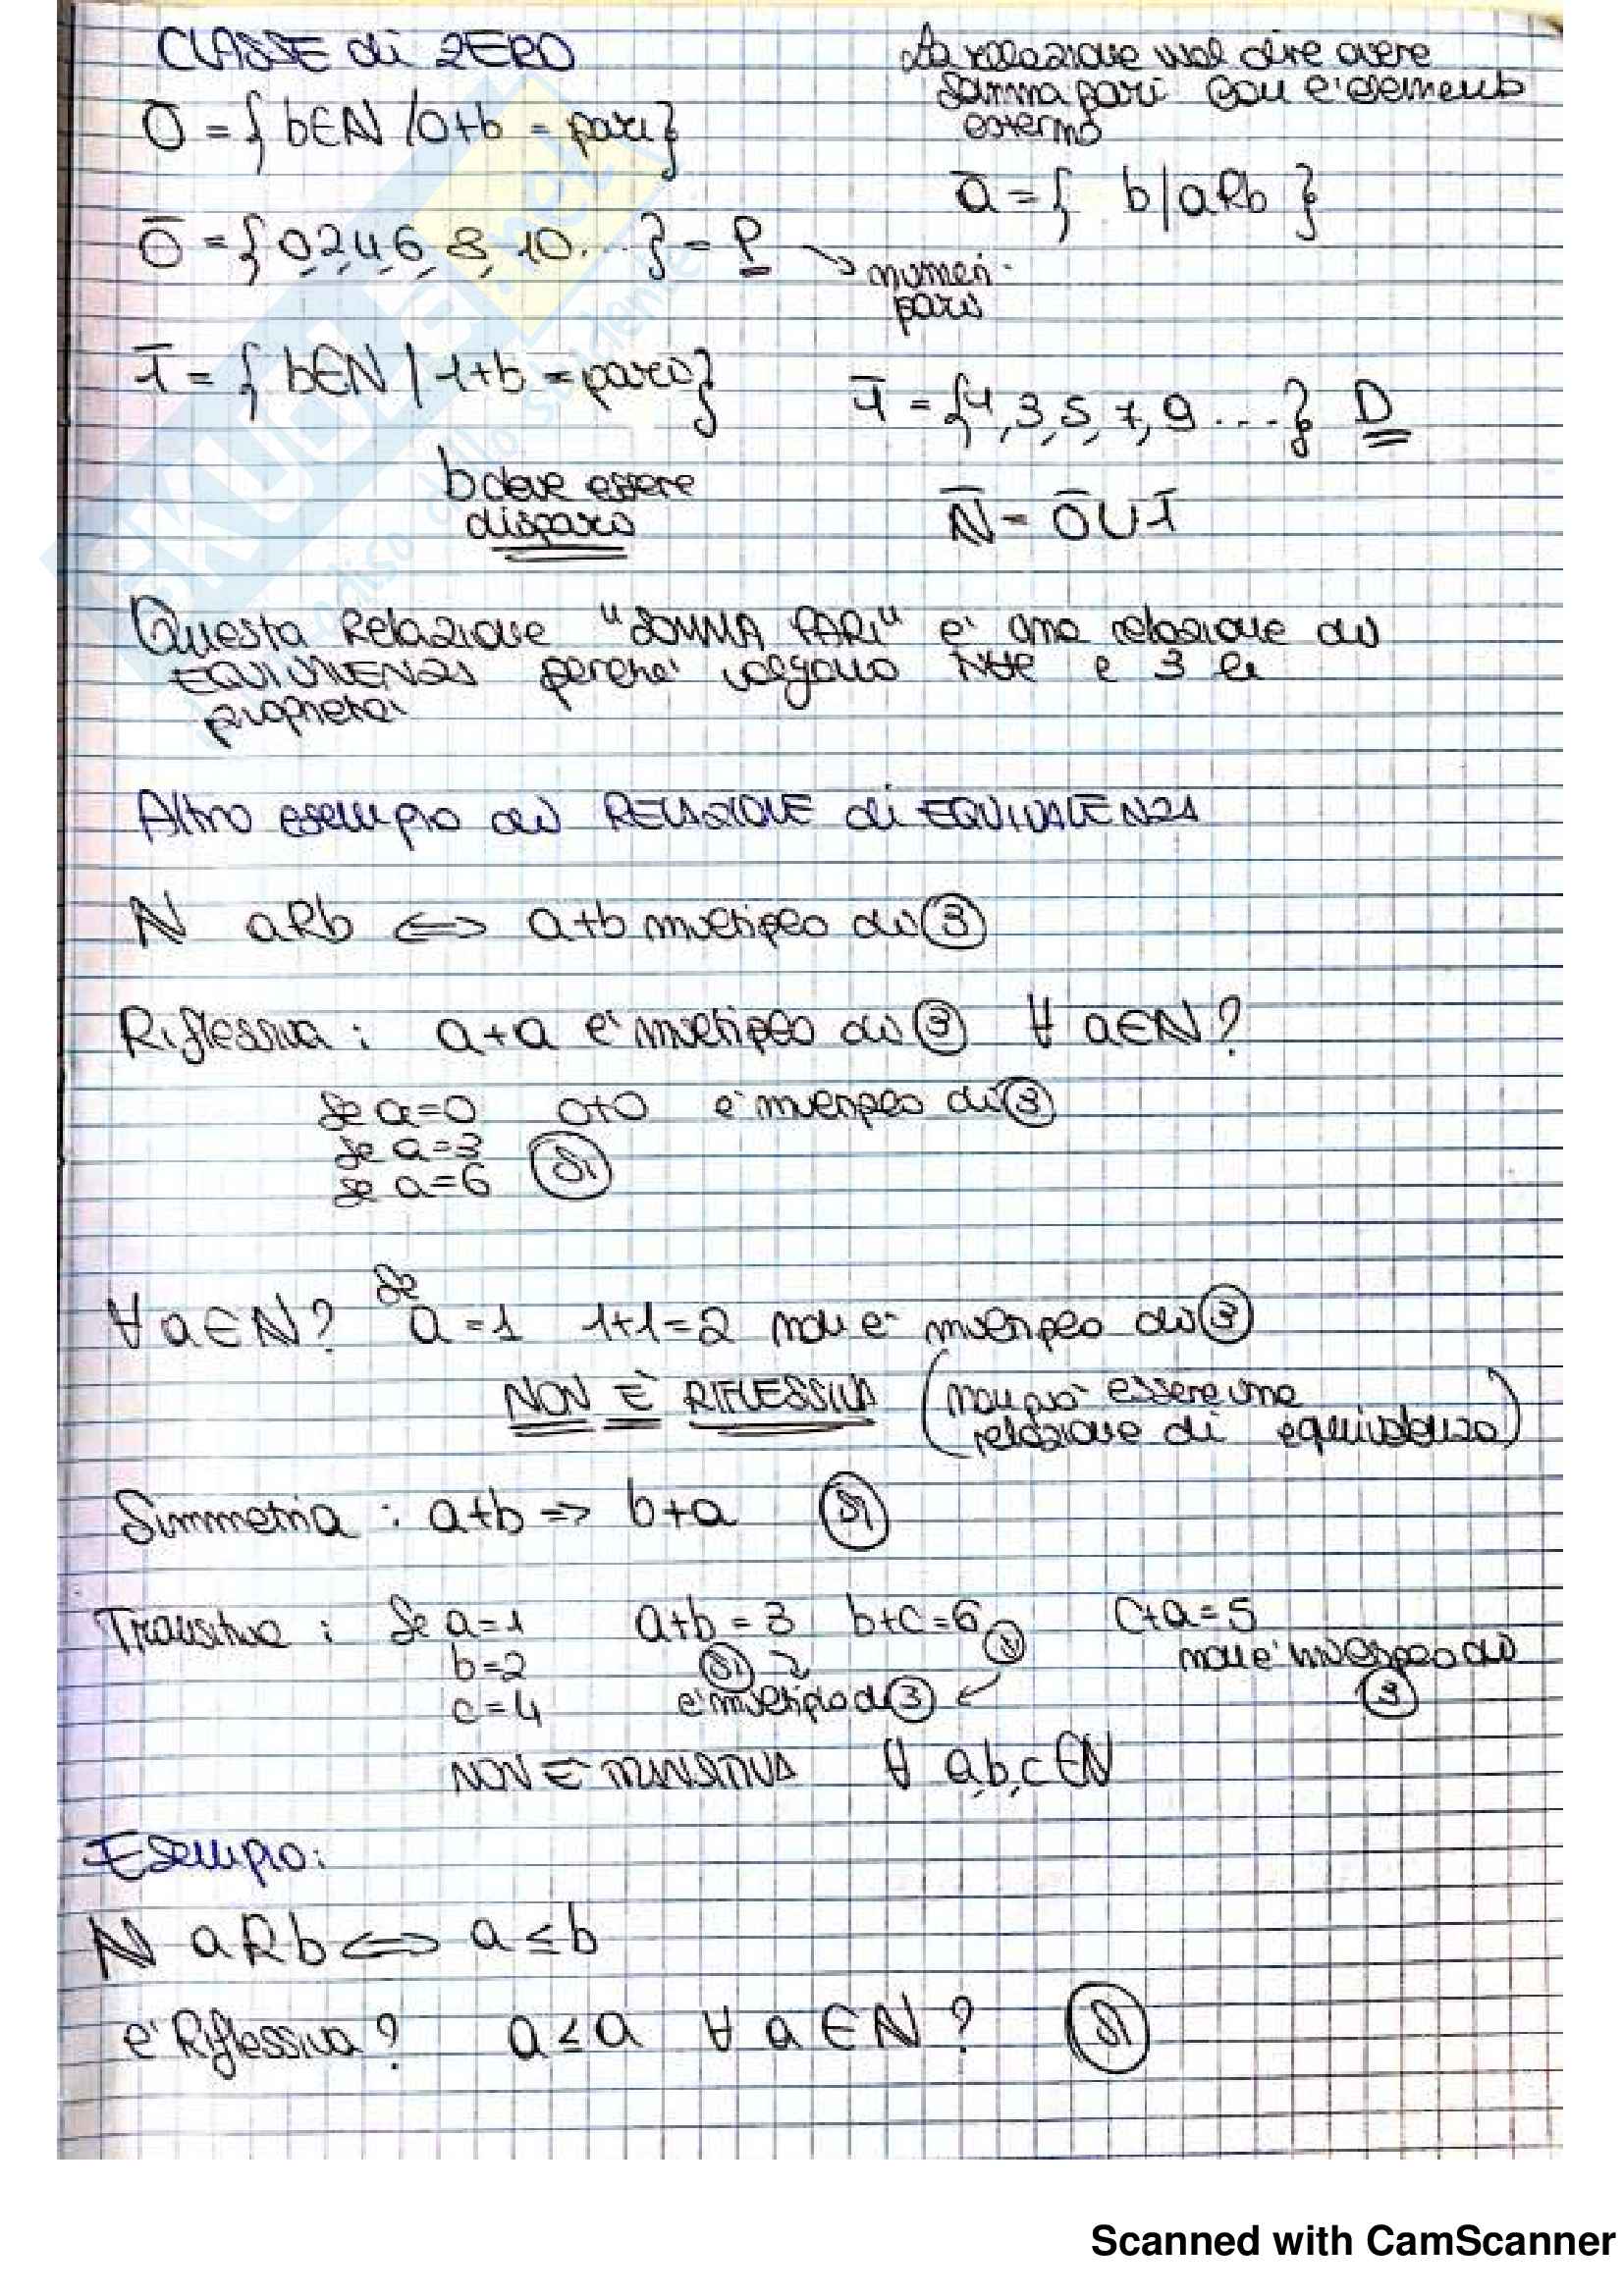 CLASSE di ZERO
La relazione vuol dire avere
somma pari con l'elemento
esterno
0̅ = { b∈N / 0+b = pari}
a̅ = { b | aRb }
0̅ = { 0,2,4,6,8,10... } = P → numeri
pari
1̅ = { b∈N | 1+b = pari}
1̅ = {1,3,5,7,9...} D
b deve essere
dispari
N̅ = 0̅ U 1̅
Questa Relazione "SOMMA PARI" e' una relazione di
EQUIVALENZA perche' valgono tutte e 3 le
proprieta'
Altro esempio di RELAZIONE di EQUIVALENZA
N aRb ⟺ a+b multiplo di 3
Riflessiva : a+a e' multiplo di 3 ∀ a∈N?
Se a=0 0+0 e' multiplo di 3
se a=3
se a=6 SI
∀ a∈N? Se a=1 1+1=2 non e' multiplo di 3
NON È RIFLESSIVA (non puo' essere una
relazione di equivalenza)
Simmetria : a+b => b+a SI
Transitiva : Se a=1 a+b=3 b+c=6 SI c+a=5
b=2 SI non e' multiplo di
c=4 e' multiplo di 3 3
NON È TRANSITIVA ∀ a,b,c∈N
Esempio:
N aRb ⟺ a≤b
e' Riflessiva? a≤a ∀ a∈N? SI
SKUOLA.net
Scanned with CamScanner